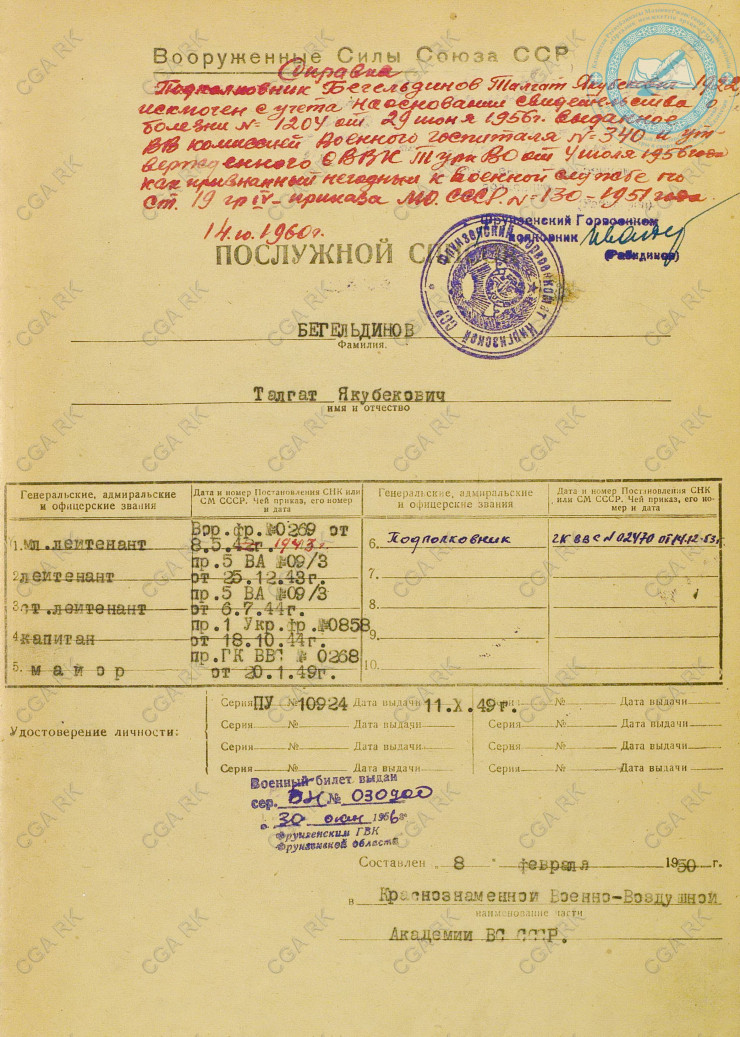 Вооруженные Силы Союза ССР
Справка
Подполковник Бегельдинов Талгат Якубекович 1922
исключен с учета на основании свидетельства о
болезни № 1204 от 29 июня 1956г. выданное
ВВ комиссией Военного госпиталя № 340 и ут-
вержденного ОВВК ТуркВО от 4 июля 1956 года
как признанный негодным к военной службе по
ст. 19 гр IV - приказа МО. СССР. № 130 - 1951 года.
14.10.1960г.
Фрунзенский Горвоенком
полковник
ПОСЛУЖНОЙ
Фрунзенский Горвоенкомат Киргизской ССР
БЕГЕЛЬДИНОВ
Фамилия.
Талгат Якубекович
имя и отчество
Генеральские, адмиральские и офицерские звания
Дата и номер Постановления СНК или СМ СССР. Чей приказ, его номер и дата
Генеральские, адмиральские и офицерские звания
Дата и номер Постановления СНК или СМ СССР. Чей приказ, его номер и дата
1. мл.лейтенант Вор.фр.№0269 от 8.5.42г. 1943г.
2. лейтенант пр.5 ВА №09/3 от 25.12.43г.
3. ст.лейтенант пр.5 ВА №09/3 от 6.7.44г.
4. капитан пр.1 Укр.фр.№0858 от 18.10.44г.
5. майор пр.ГК ВВС № 0268 от 20.1.49г.
6. Подполковник ГК ВВС № 02470 от 14.12.53г.
7.
8.
9.
10.
Удостоверение личности:
Серия ПУ № 10924 Дата выдачи 11.X.49г. № Дата выдачи
Серия № Дата выдачи Серия № Дата выдачи
Серия № Дата выдачи Серия № Дата выдачи
Серия № Дата выдачи Серия № Дата выдачи
Военный билет выдан
сер. № 030900
30 1956г
Фрунзенским ГВК
Фрунзенской области
Составлен „ 8 февраля 1950 г.
в Краснознаменной Военно-Воздушной
наименование части
Академии ВС СССР.
CGA RK